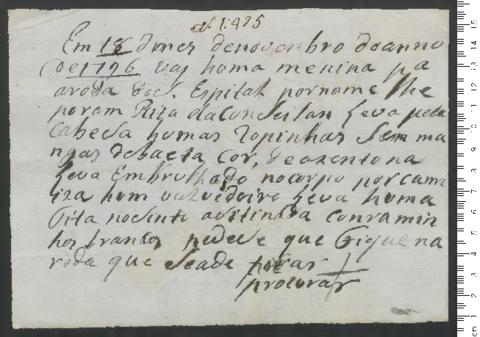 nº 1:425
Em 18 do mes de novenbro do anno
de 1796 vaj homa menina pa
a roda do S. Espital por nome lhe
poram Rita da Conseisan leva pela
Cabesa homas Ropinhas Sem ma
ngas de baeta Cor de azeitona
leva Embrulhado no corpo por cam
iza hom leva homa
fita no sinto com ramin
hos brancos pedese que fique na
roda que se ade
procurar